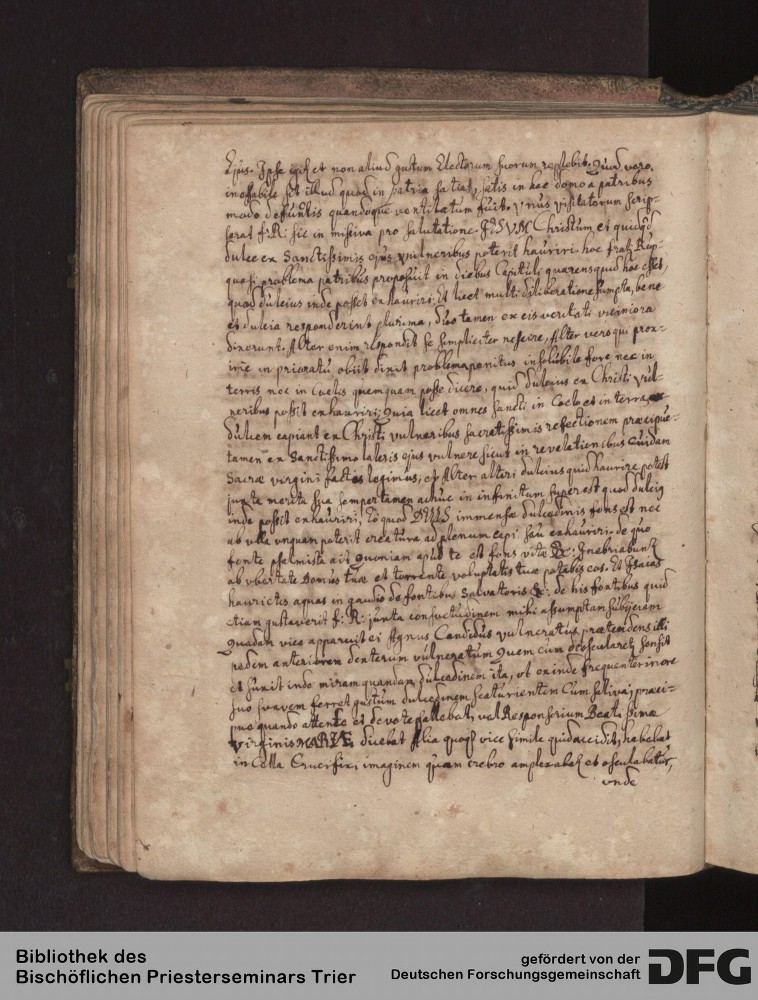 Ejus. Ipse eñ et non aliud gustum Electorum suorum replebit. Quid vero
ineffabile sit illud quod in patria satiat, satis in hac domo a patribus
modo defunctis quandoque ventilatum fuit. Unus visitatorum scrip-
serat f: R: sic in missiva pro salutatione. IESVM Christum et quidqd
dulce ex Sanctissimis ejus vulneribus poterit hauriri hoc frater Rup-
quasi problema patribus proposuit in diebus Capituli quaerens quid hoc esset,
quod dulcius inde posset exhauriri, Et licet multi deliberatione sumpta, bene
et dulcia responderint plurima, duo tamen ex eis veritati viciniora
dixerunt. Alter enim respondit se simpliciter nescire, Alter vero qui prox-
ime in prioratu obiit dixit problema penitus insolubile fore nec in
terris nec in Coelis quemquam posse dicere, quid dulcius ex Christi vul-
neribus possit exhauriri; quia licet omnes Sancti in Coelo et in terra
dulcem capiant ex Christi vulneribus sacratissimis refectionem praecipue
tamen ex Sanctissimo lateris ejus vulnere sicut in revelationibus cuidam
Sacrae virgini factis legimus, et Alter alteri dulcius quid haurire potest
juxta merita sua semper tamen adhuc in infinitum superest quod dulcius
inde possit exhauriri, eo quod DEUS immensae dulcedinis fons est nec
ab ulla unquam poterit creatura ad plenum capi seu exhauriri. de quo
fonte psalmista ait Quoniam apud te est fons vitae &: Inebriabunt
ab ubertate Domus tuae et torrente voluptatis tuae potabis eos. Et Isaias
haurietis aquas in gaudio de fontibus Salvatoris &: de his fontibus quid
etiam gustaverit f: R: juxta consuetudinem mihi assumptam subijciam
Quadam vice apparuit ei Agnus Candidus vulneratus praetendens illi
pedem anteriorem dexterum vulneratum Quem cum deoscularetur sensit
et suxit inde miram quandam dulcedinem ita, ut exinde frequenter in ore
suo suavem ferret gustum dulcedinem scaturientem Cum saliva; praeci-
pue quando attente et devote psallebat, vel Responsorium Beatissimae
virginis MARIAE dicebat Alia quoque vice simile quid accidit, habebat
in Cella Crucifixi imaginem quam crebro amplexabatur et osculabatur,
unde
Bibliothek des
Bischöflichen Priesterseminars Trier
gefördert von der
Deutschen Forschungsgemeinschaft
DFG